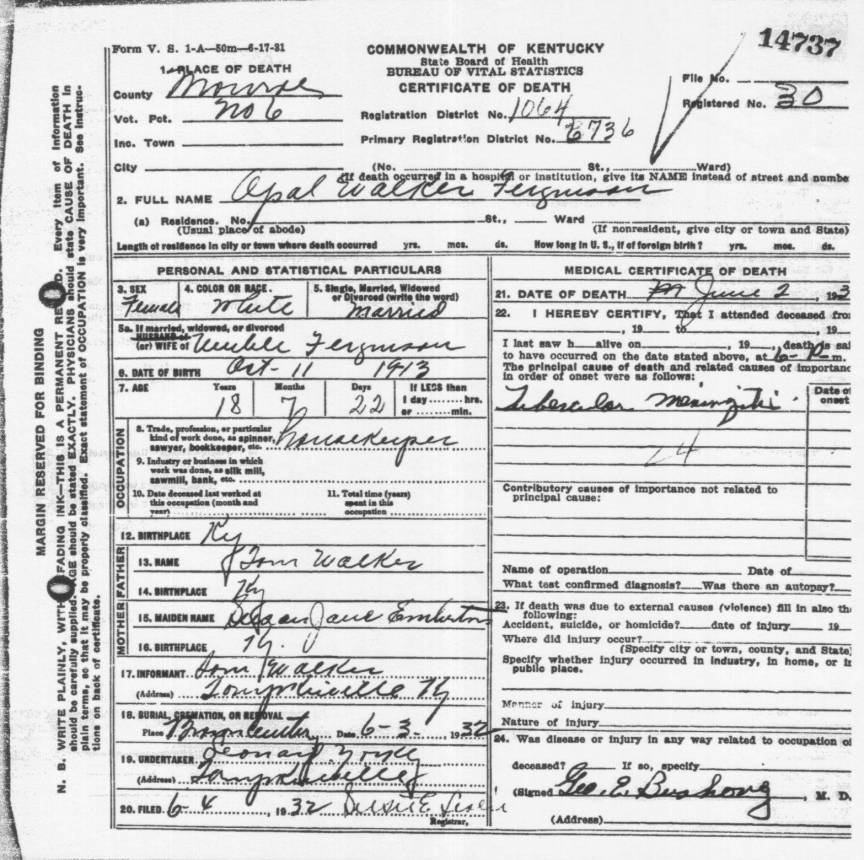 14737
Form V. S. 1-A—50m—6-17-31
COMMONWEALTH OF KENTUCKY
State Board of Health
BUREAU OF VITAL STATISTICS
CERTIFICATE OF DEATH
File No.
Registered No. 30
1. PLACE OF DEATH
County Monroe
Vot. Pct. No 6
Inc. Town
City
Registration District No. 1064
Primary Registration District No. 6736
(No. St., Ward)
(If death occurred in a hospital or institution, give its NAME instead of street and numbe
2. FULL NAME Opal Walker Ferguson
(a) Residence. No. St., Ward
(Usual place of abode) (If nonresident, give city or town and State)
Length of residence in city or town where death occurred yrs. mos. ds. How long in U. S., if of foreign birth? yrs. mos. ds.
PERSONAL AND STATISTICAL PARTICULARS
3. SEX Female
4. COLOR OR RACE. White
5. Single, Married, Widowed
or Divorced (write the word)
Married
5a. If married, widowed, or divorced
HUSBAND of
(or) WIFE of Ferguson
6. DATE OF BIRTH Oct- 11 1913
7. AGE Years Months Days If LESS than
18 7 22 1 day hrs.
or min.
OCCUPATION
8. Trade, profession, or particular
kind of work done, as spinner,
sawyer, bookkeeper, etc.
housekeeper
9. Industry or business in which
work was done, as silk mill,
sawmill, bank, etc.
10. Date deceased last worked at
this occupation (month and
year)
11. Total time (years)
spent in this
occupation
12. BIRTHPLACE Ky
FATHER
13. NAME Tom Walker
14. BIRTHPLACE Ky
MOTHER
15. MAIDEN NAME Jane Emberton
16. BIRTHPLACE Ky.
17. INFORMANT Tom Walker
(Address) Tompkinsville Ky
18. BURIAL, CREMATION, OR REMOVAL
Place Date 6-3- 1932
19. UNDERTAKER Leonard Yokley
(Address) Tompkinsville
20. FILED 6-4, 1932
Registrar.
MEDICAL CERTIFICATE OF DEATH
21. DATE OF DEATH June 2, 193
22. I HEREBY CERTIFY, That I attended deceased from
, 19 to , 19
I last saw h alive on , 19 , death is sai
to have occurred on the date stated above, at 6-P m.
The principal cause of death and related causes of importanc
in order of onset were as follows:
Date of
onset
Tubercular Meningitis
24
Contributory causes of importance not related to
principal cause:
Name of operation Date of
What test confirmed diagnosis? Was there an autopsy?
23. If death was due to external causes (violence) fill in also th
following:
Accident, suicide, or homicide? date of injury 19
Where did injury occur?
(Specify city or town, county, and State)
Specify whether injury occurred in industry, in home, or in
public place.
Manner of injury
Nature of injury
24. Was disease or injury in any way related to occupation of
deceased? If so, specify
(Signed Geo. E. Bushong, M. D.
(Address)
MARGIN RESERVED FOR BINDING
N. B. WRITE PLAINLY, WITH FADING INK—THIS IS A PERMANENT RE D. Every item of information
should be carefully supplied. AGE should be stated EXACTLY. PHYSICIANS should state CAUSE OF DEATH in
plain terms, so that it may be properly classified. Exact statement of OCCUPATION is very important. See instruc-
tions on back of certificate.